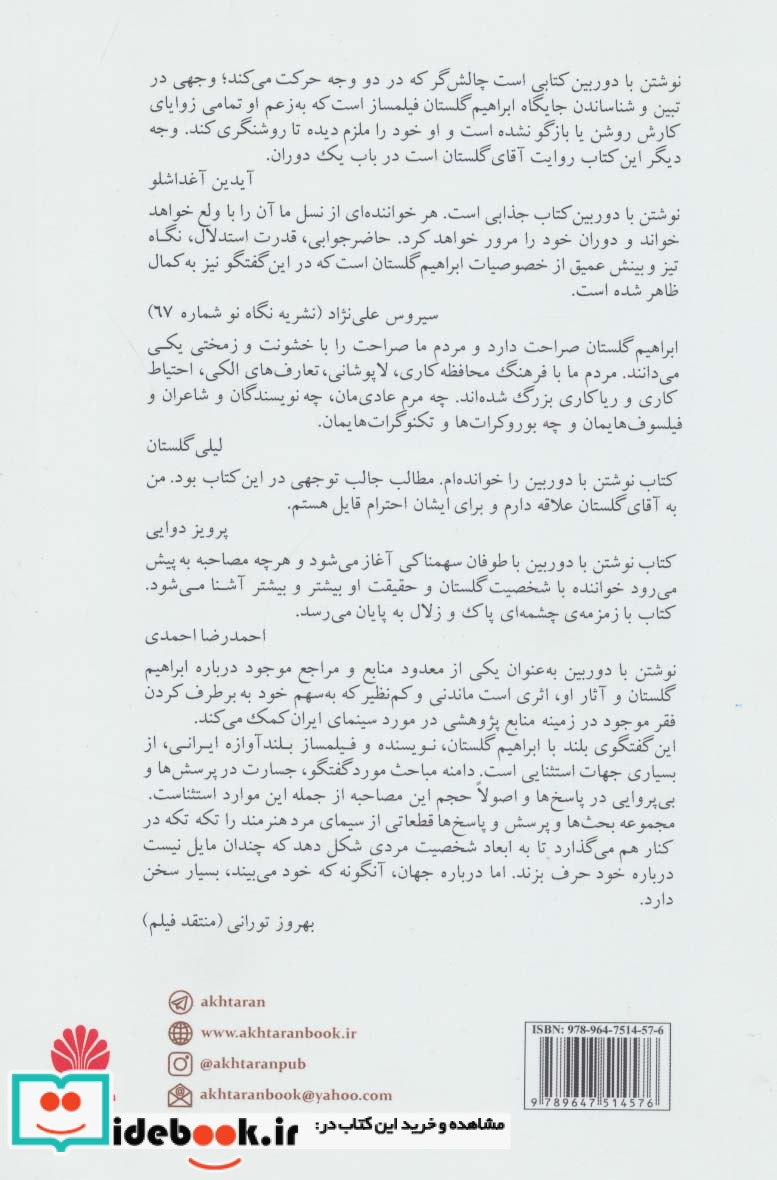 نوشتن با دوربین کتابی است چالش‌گر که در دو وجه حرکت می‌کند؛ وجهی در
تبین و شناساندن جایگاه ابراهیم گلستان فیلمساز است که به‌زعم او تمامی زوایای
کارش روشن یا بازگو نشده است و او خود را ملزم دیده تا روشنگری کند. وجه
دیگر این کتاب روایت آقای گلستان است در باب یک دوران.
آیدین آغداشلو
نوشتن با دوربین کتاب جذابی است. هر خواننده‌ای از نسل ما آن را با ولع خواهد
خواند و دوران خود را مرور خواهد کرد. حاضرجوابی، قدرت استدلال، نگاه
تیز و بینش عمیق از خصوصیات ابراهیم گلستان است که در این گفتگو نیز به کمال
ظاهر شده است.
سیروس علی‌نژاد (نشریه نگاه نو شماره ۶۷)
ابراهیم گلستان صراحت دارد و مردم ما صراحت را با خشونت و زمختی یکی
می‌دانند. مردم ما با فرهنگ محافظه‌کاری، لاپوشانی، تعارف‌های الکی، احتیاط
کاری و ریاکاری بزرگ شده‌اند. چه مرم عادی‌مان، چه نویسندگان و شاعران و
فیلسوف‌هایمان و چه بوروکرات‌ها و تکنوگرات‌هایمان.
لیلی گلستان
کتاب نوشتن با دوربین را خوانده‌ام. مطالب جالب توجهی در این کتاب بود. من
به آقای گلستان علاقه دارم و برای ایشان احترام قایل هستم.
پرویز دوایی
کتاب نوشتن با دوربین با طوفان سهمناکی آغاز می‌شود و هرچه مصاحبه به پیش
می‌رود خواننده با شخصیت گلستان و حقیقت او بیشتر و بیشتر آشنا می‌شود.
کتاب با زمزمه‌ی چشمه‌ای پاک و زلال به پایان می‌رسد.
احمدرضا احمدی
نوشتن با دوربین به‌عنوان یکی از معدود منابع و مراجع موجود درباره ابراهیم
گلستان و آثار او، اثری است ماندنی و کم‌نظیر که به‌سهم خود به برطرف کردن
فقر موجود در زمینه منابع پژوهشی در مورد سینمای ایران کمک می‌کند.
این گفتگوی بلند با ابراهیم گلستان، نویسنده و فیلمساز بلندآوازه ایرانی، از
بسیاری جهات استثنایی است. دامنه مباحث مورد گفتگو، جسارت در پرسش‌ها و
بی‌پروایی در پاسخ‌ها و اصولاً حجم این مصاحبه از جمله این موارد استثناست.
مجموعه بحث‌ها و پرسش و پاسخ‌ها قطعاتی از سیمای مرد هنرمند را تکه تکه در
کنار هم می‌گذارد تا به ابعاد شخصیت مردی شکل دهد که چندان مایل نیست
درباره خود حرف بزند. اما درباره جهان، آنگونه که خود می‌بیند، بسیار سخن
دارد.
بهروز تورانی (منتقد فیلم)
akhtaran
www.akhtaranbook.ir
@akhtaranpub
akhtaranbook@yahoo.com
ISBN: 978-964-7514-57-6
9 789647 514576
مشاهده و خرید این کتاب در:
idebook.ir